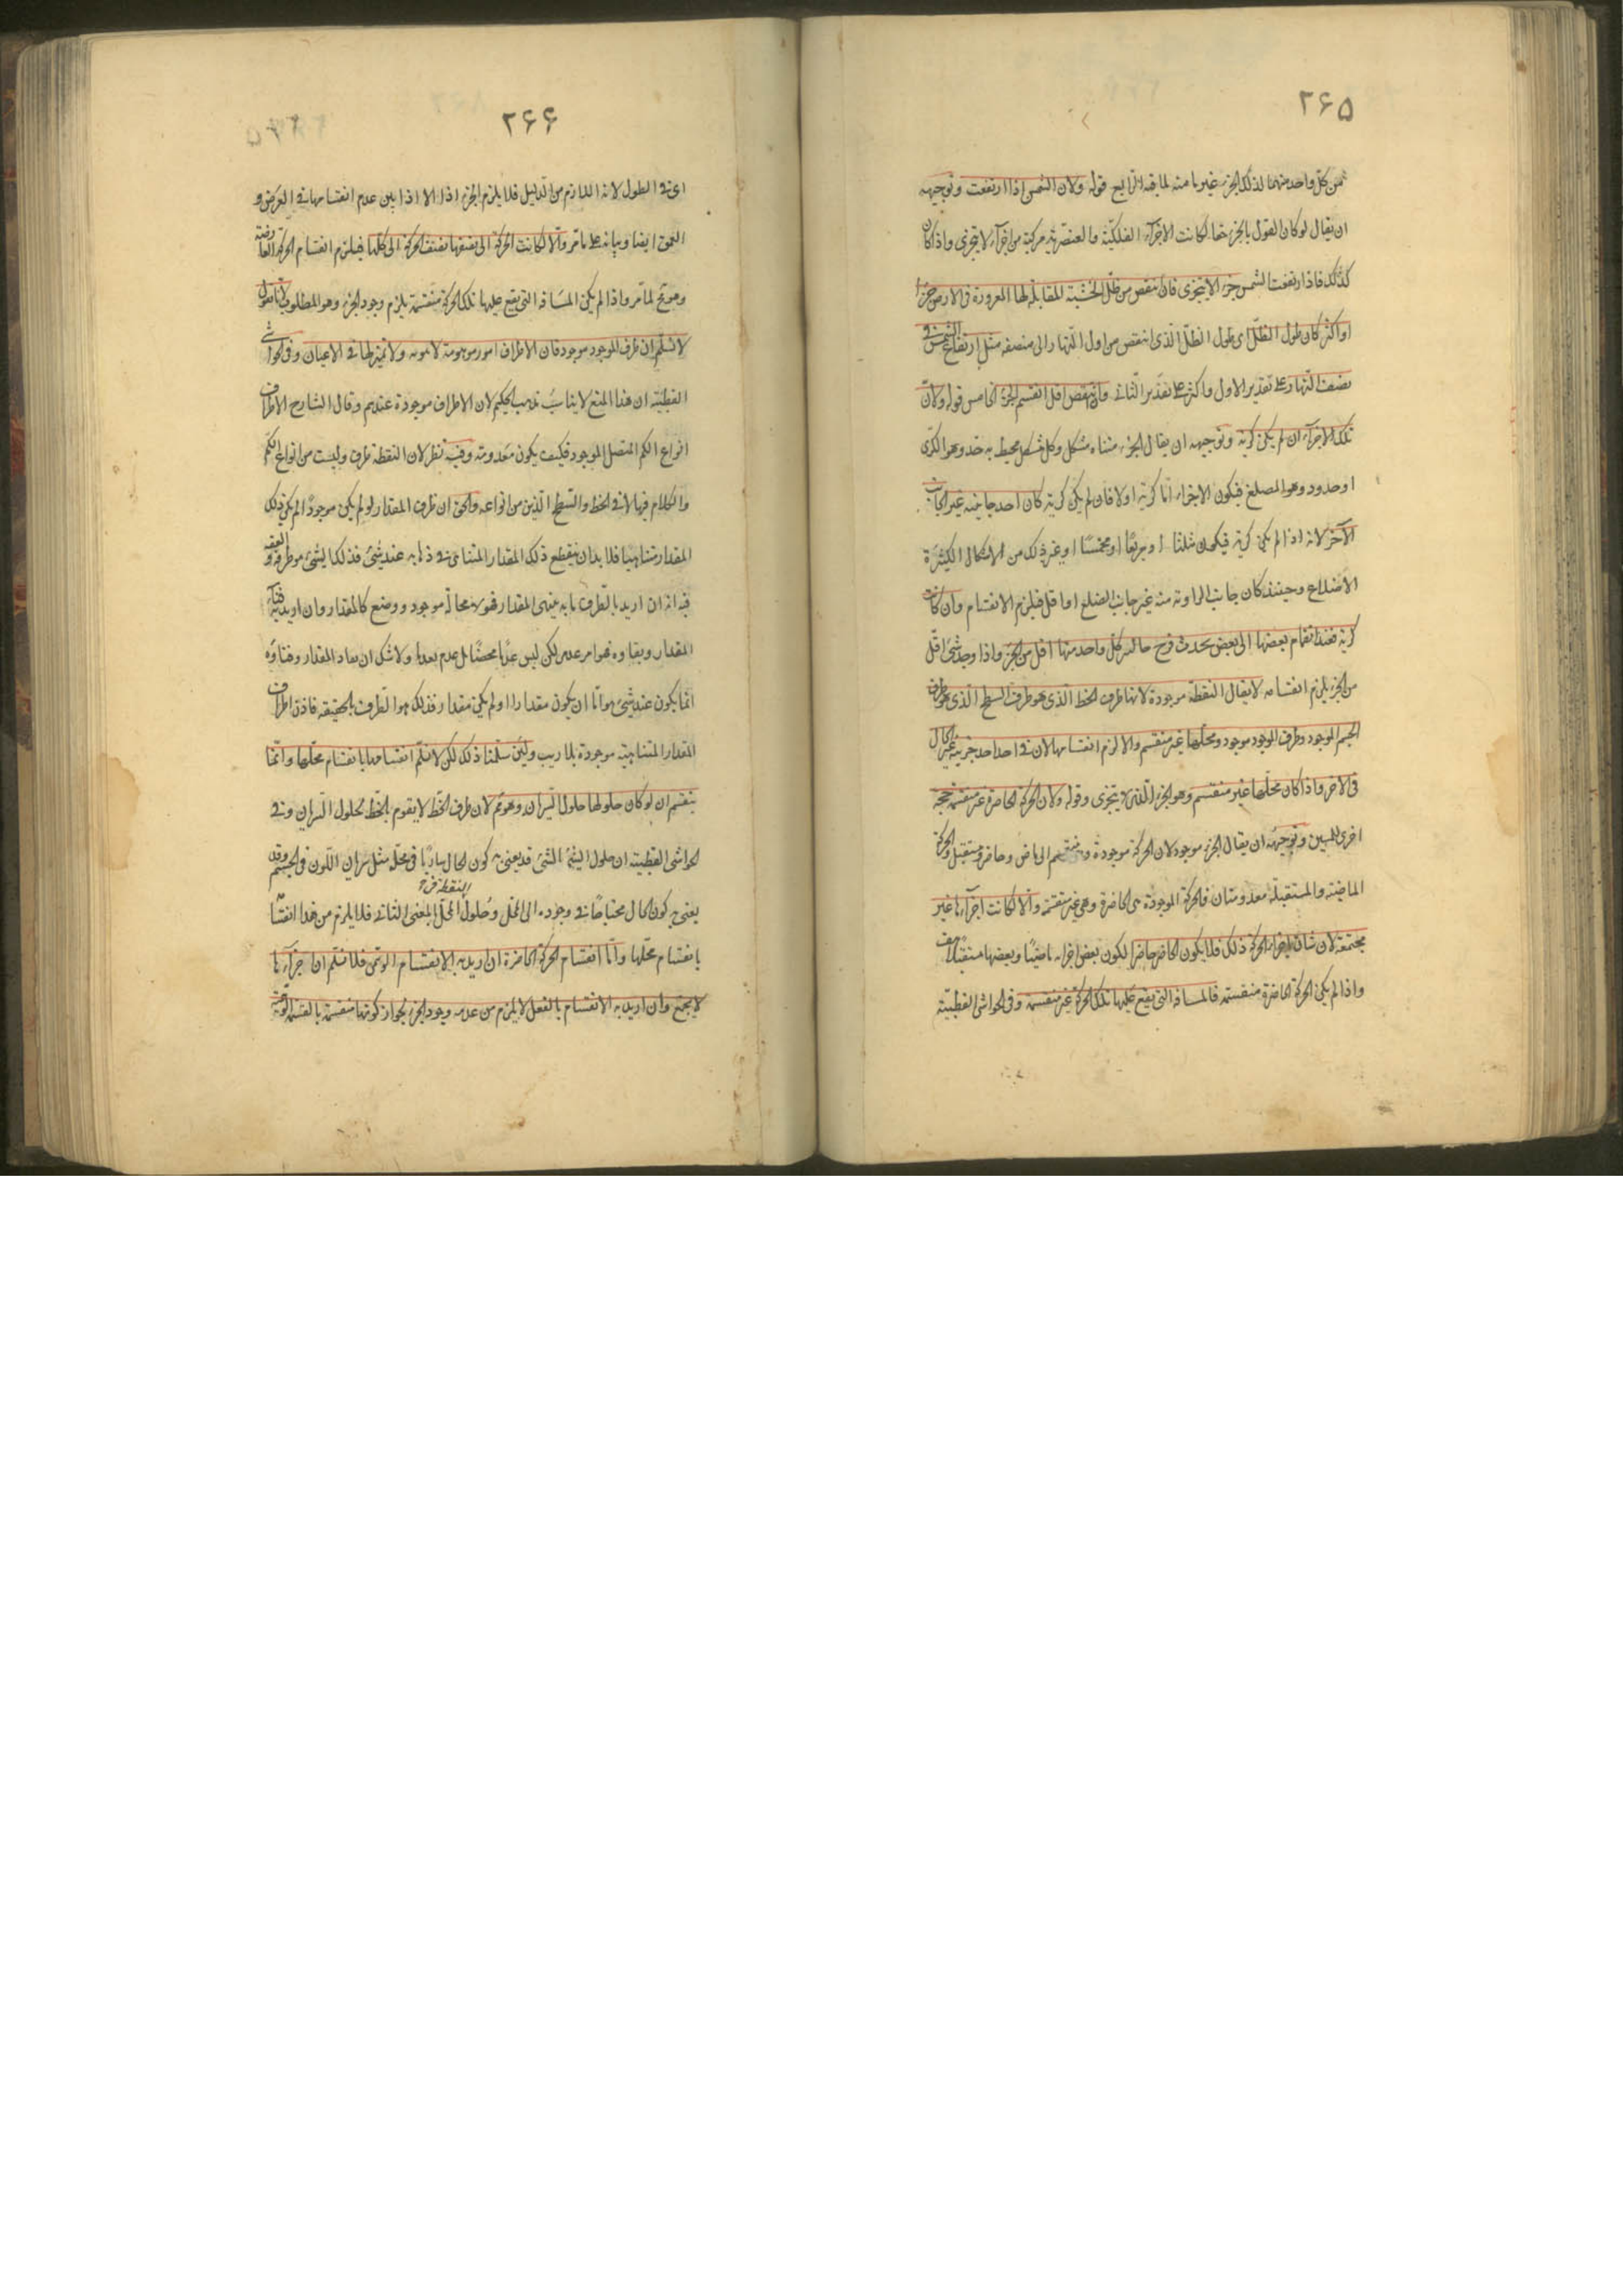 ۲۶۵
من كل واحد منهما لذلك الجزء غير ما منه لما يقه الرابع قوله ولان الشمس اذا ارتفعت وتوجيهه
ان يقال لو كان القول بالجزء حقا لكانت الاجزآء الفلكيّة والعنصرية مركبة من اجزآء لا يتجزى واذا كان
كذلك فاذا ارتفعت الشمس جزء الا يتجزى فان انتقص من ظلّ الخشبة المقابلة لها المغروزة فى الارض جزء
او اكثر كان طول الظلّ اى طول الظلّ الّذى انتقص من اول النّهار الى منصفه مثل ارتفاع الشمس فى
نصف النّهار على تقدير الاول واكثر على تقدير الثانى وان انتقص اقل انقسم الجزء الخامس قوله ولانّ
تلك الاجزآء ان لم يكن كرية وتوجيهه ان يقال الجزء متناه مشكل وكل مشكل محيط به حد وهو الكرى
او حدود وهو المضلع فيكون الاجزاء امّا كرية اولا فان لم يكن كرية كان احد جانبيه غير الجانب
الآخر لانه اذا لم يكن كرية فيكون مثلثا او مربعًا او مخمسًا او غير ذلك من الاشكال الكثيرة
الاضلاع وحينئذ كان جانب الزاوية منه غير جانب الضلع او اقل فيلزم الانقسام وان كانت
كرية فعند انضمام بعضها الى بعض يحدث فرج خالية كل واحد منها اقل من الجزء واذا وجد شىء اقلّ
من الجزء يلزم انقسامه لا يقال النقطة موجودة لانها طرف الخط الّذى هو طرف السطح الّذى هو طرف
الجسم الموجود وطرف الموجود موجود ومحلّها غير منقسم والا لزم انقسامها لان فى احد احد جزئيه غير الحال
فى الآخر واذا كان محلّها غير منقسم وهو الجزء الّذى لا يتجزى وقوله ولان الحركة الحاضرة غير منقسمة حجة
اخرى للمثبتين وتوجيهه ان يقال الجزء موجود لان الحركة موجودة وينقسم الى ماض وحاضر ومستقبل والحركة
الماضية والمستقبلة معدومتان فالحركة الموجودة هى الحاضرة وهى غير منقسمة والا لكانت اجزآءها غير
مجتمعة لان شان اجزاء الحركة ذلك فلا يكون الحاضر حاضرا لكون بعض اجزاءه ماضيًا وبعضها مستقبلا هف
واذا لم يكن الحركة الحاضرة منقسمة فالمسافة التى يقع عليها تلك الحركة غير منقسمة وفى الحواشى القطبيّة
۲۶۶
اى فى الطول لانه اللازم من الدليل فلا يلزم الجزء اذا الا اذا بين عدم انقسامها فى العرض و
العمق ايضا وبيانه على ما مر والّا لكانت الحركة الى نصفها نصف الحركة الى كلّها فيلزم انقسام الحركة الحاضرة
وهو مح لما مر واذا لم يكن المسافة التى يقع عليها تلك الحركة منقسمة يلزم وجود الجزء وهو المطلوب لانا نقول
لا نسلّم ان طرف الموجود موجود فان الاطراف امور موهومة لا وجود ولا تميز لها فى الاعيان وفى الحواشى
القطبيّة ان هذا المنع لا يناسب مذهب الحكيم لان الاطراف موجودة عندهم وقال الشارح الاطراف
انواع الكم المتصل الموجود فكيف يكون معدومة وفيه نظر لان النقطة طرف وليست من انواع الكم
والكلام فيها لا فى الخط والسّطح الّذين من انواعه والحق ان طرف المقدار لو لم يكن موجودًا لم يكن ذلك
المقدار متناهيا فلا بد ان ينقطع ذلك المقدار المتناهى فى ذهابه عند شىء فذلك الشىء هو طرفه والفقه
فيه انه ان اريد بالطرف ما به ينتهى المقدار فهو لا محالة موجود ووضع كالمقدار وان اريد به فنآء
المقدار وبقاوه فهو امر عدمى لكن ليس عدمًا محضًا بل عدم بعدما ولا شك ان نفاد المقدار وفناؤه
انما يكون عند شىء هو امّا ان يكون مقدارا او لم يكن مقدار فذلك هو الطرف بالحقيقة فاذن اطراف
المقدار المتناهية موجودة بلا ريب ولئن سلّمنا ذلك لكن لا نسلّم انقسامها بانقسام محلّها وانّما
ينقسم ان لو كان حلولها حلول السّريان وهو مم لان طرف الخطّ لا يقوم بالخطّ بحلول السّريان وفى
الحواشى القطبية ان حلول الشىء الشىء قد يعنى به كون الحال ساريًا فى محلّه مثل سريان اللّون فى الجسم وقد
يعنى به كون الحال محتاجًا فى وجوده الى المحلّ وحلول النقطة فى المحلّ بالمعنى الثانى فلا يلزم من هذا انقسامها
بانقسام محلّها وامّا انقسام الحركة الحاضرة ان اريد به الانقسام الوهمى فلا نسلّم ان اجزآءها
لا يجتمع وان اريد به الانقسام بالفعل لا يلزم من عدمه وجود الجزء لجواز كونها منقسمة بالقسمة الوهمية